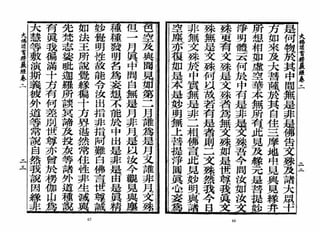 大佛頂首楞嚴經卷二
二二
是何物於其中間無是非是佛告文殊及諸大眾十
方如來及大菩薩於其自住三摩地中見與見緣并
所想相如虛空華本無所有此見及緣元是菩提妙
淨明體云何於中有是非是文殊吾今問汝如汝文
殊更有文殊是文殊者為無文殊如是世尊我真文
殊無是文殊何以故若有是者則二文殊然我今日
非無文殊於中實無是非二相佛言此見妙明與諸
空塵亦復如是本是妙明無上菩提淨圓真心妄為
色空及與聞見如第二月誰為是月又誰非月文殊
但一月真中間自無是月非月是以汝今觀見與塵
種種發明名為妄想不能於中出是非是由是真精
妙覺明性故能令汝出指非指阿難白佛言世尊誠
如法王所說覺緣徧十方界湛然常住性非生滅與
先梵志娑毗迦羅所談冥諦及投灰等諸外道種說
有真我徧滿十方有何差別世尊亦曾於楞伽山為
大慧等敷演斯義彼外道等常說自然我說因緣非
大佛頂首楞嚴經卷二